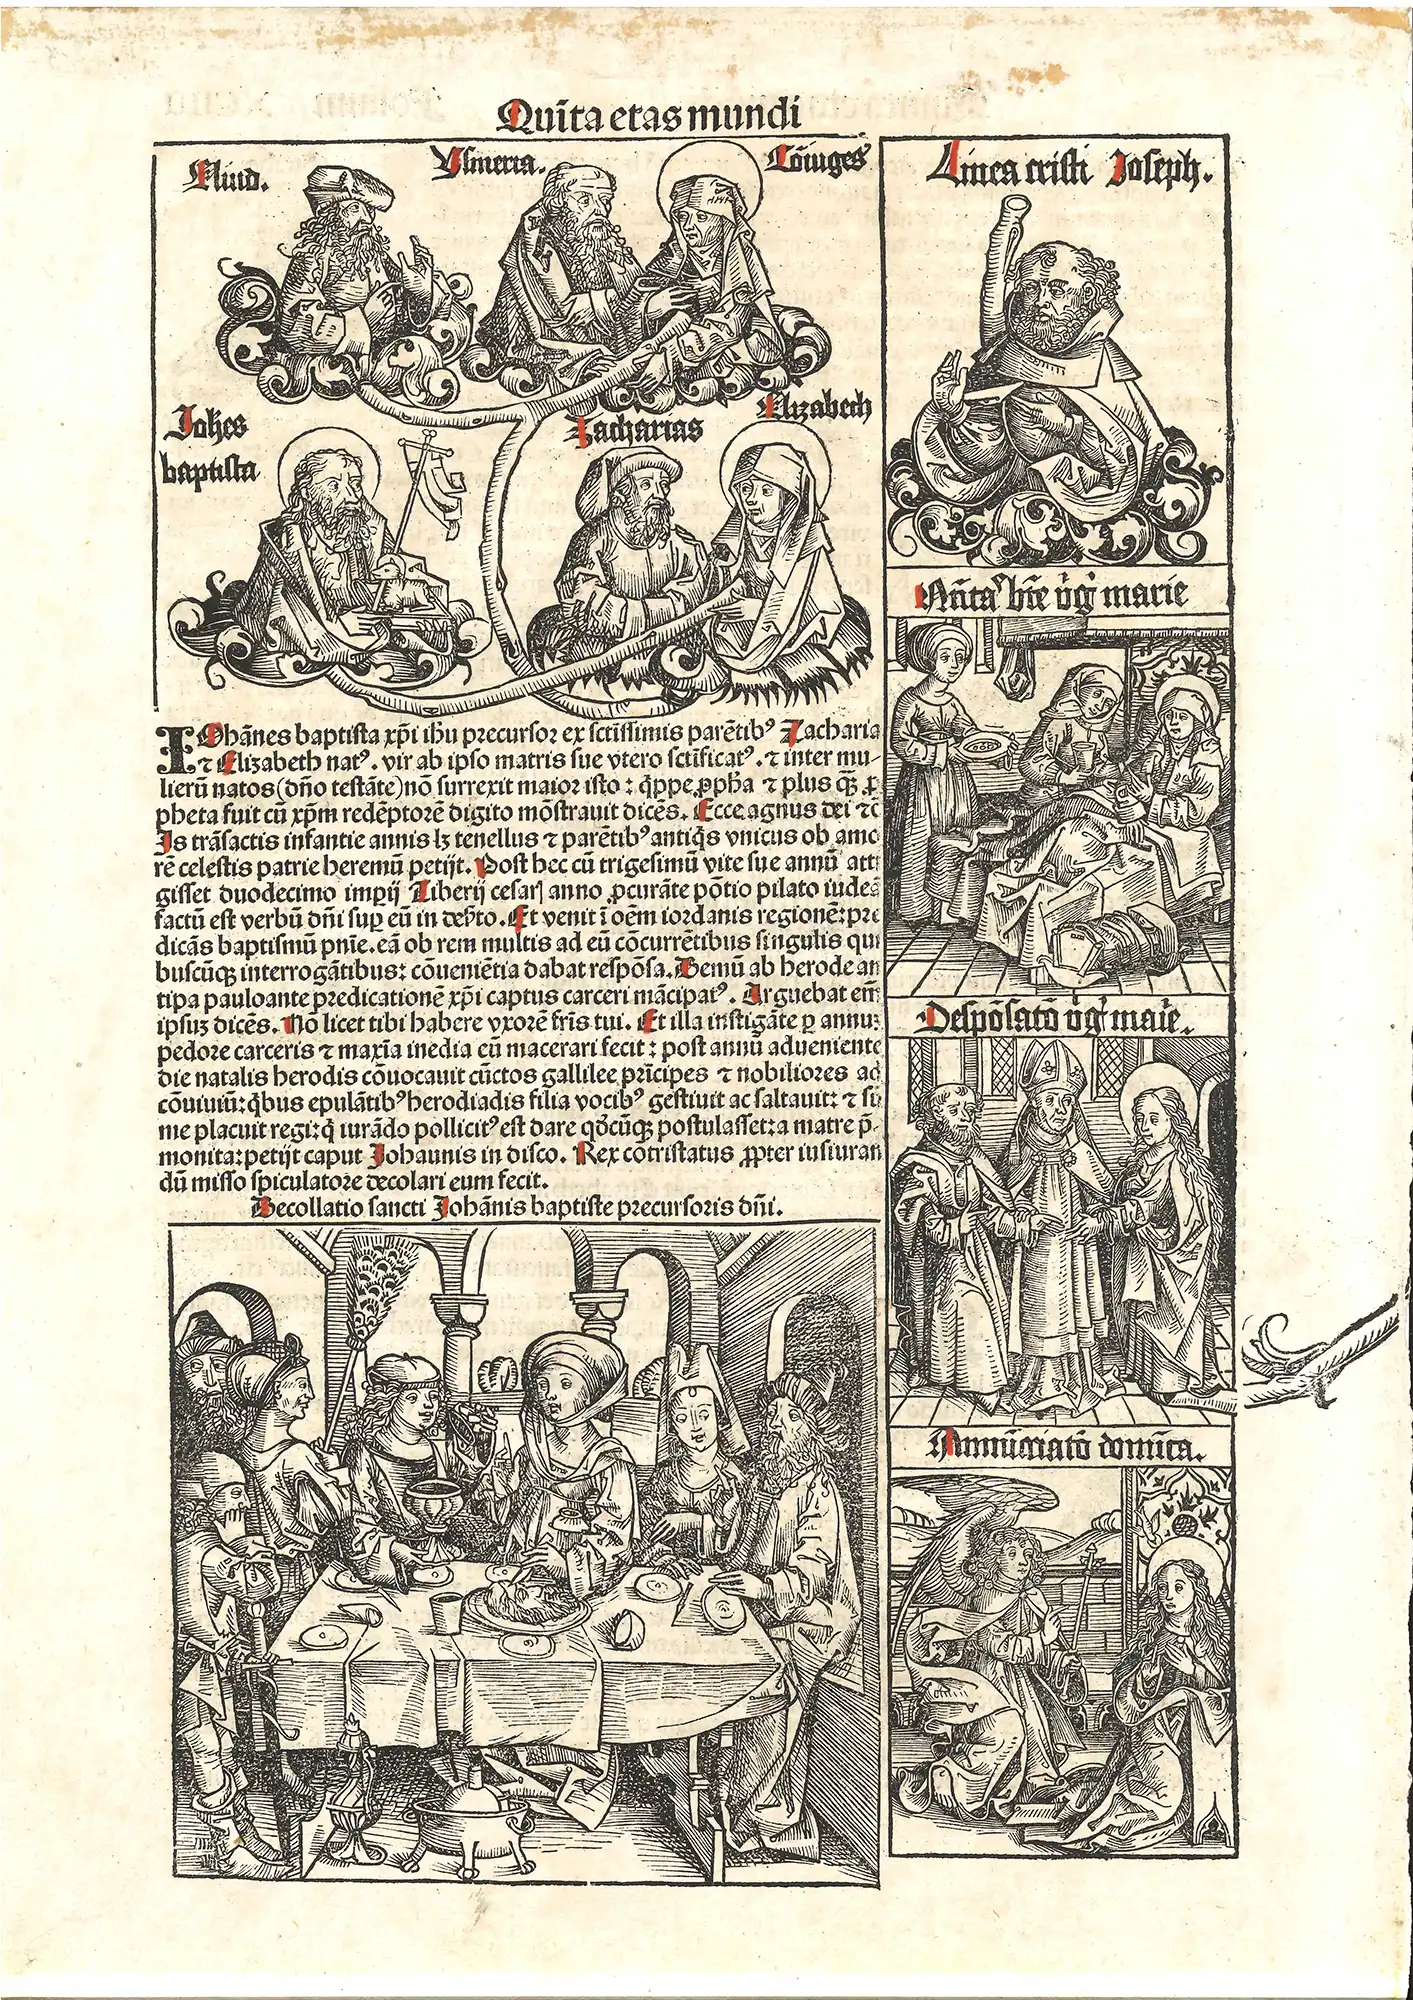 Quīta etas mundi
Eliud.
Ysmeria.
Cōiuges
Johēs
baptista
Zacharias
Elizabeth
IOhānes baptista xp̄i ih̄u precursor ex sctīssimis parētibꝰ Zacharia
⁊ Elizabeth natꝰ. vir ab ipso matris sue vtero sctīficatꝰ. ⁊ inter mu-
lierū natos (dño testāte) nō surrexit maior isto: q̄ppe ꝓpha ⁊ plus qꝫ ꝓ
pheta fuit cū xp̄m redēptorē digito mōstrauit dicēs. Ecce agnus dei ⁊c̄
Is trāsactis infantie annis lꝫ tenellus ⁊ parētibꝰ antiq̄s vnicus ob amo
rē celestis patrie heremū petijt. Post hec cū trigesimū vite sue annū atti
gisset duodecimo imp̄ij Tiberij cesarꝭ anno ꝓcurāte pōtio pilato iudeā
factū est verbū dn̄i suꝑ eū in deẜto. Et venit ī oēm iordanis regionē: pre
dicās baptismū pn̄ie. eā ob rem multis ad eū cōcurrētibus singulis qui
buscūqꝫ interrogātibus: cōueniētia dabat respōsa. Demū ab herode an
tipa pauloante predicationē xp̄i captus carceri mācipatꝰ. Arguebat em̄
ipsuꝫ dicēs. Nō licet tibi habere vxorē fr̄is tui. Et illa instigāte ꝑ annuꝫ
pedore carceris ⁊ maxīa inedia eū macerari fecit: post annū adueniente
die natalis herodis cōuocauit cūctos gallilee prīcipes ⁊ nobiliores ad
cōuiuiū: q̄bus epulātibꝰ herodiadis filia vocibꝰ gestiuit ac saltauit: ⁊ sū
me placuit regi: q̄ iurādo pollicitꝰ est dare qd̄cūqꝫ postulasset: a matre p̄-
monita: petijt caput Johannis in disco. Rex cōtristatus ꝓpter iusiuran
dū misso spiculatore decolari eum fecit.
Decollatio sancti Johānis baptiste precursoris dn̄i.
Linea cristi Joseph.
Nāīta⁹ bt̄e v̄ḡ marie
Despōsatō v̄ḡ maīe.
Annūciatō domīca.